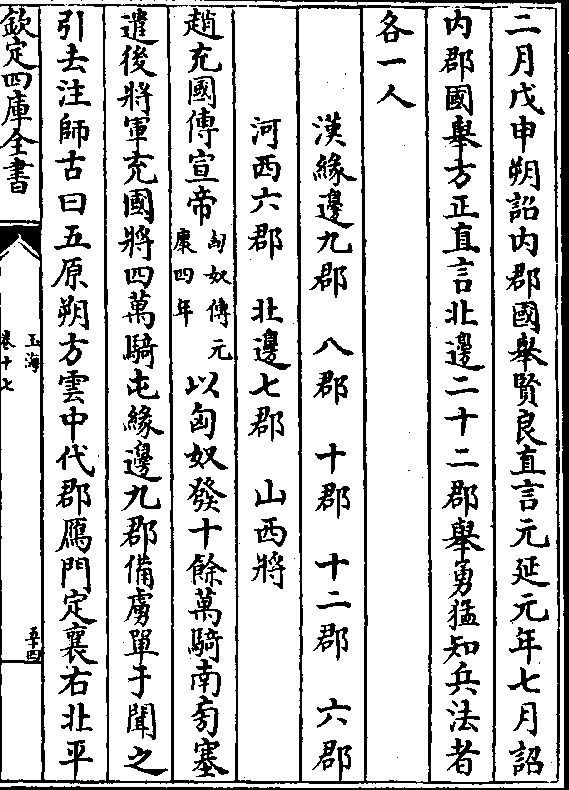 二月戊申朔詔内郡國舉賢良直言元延元年七月詔
内郡國舉方正直言北邊二十二郡舉勇猛知兵法者
各一人
漢緣邊九郡 八郡 十郡 十二郡 六郡
河西六郡 北邊七郡 山西將
趙充國傳宣帝匈奴傳元康四年以匈奴發十餘萬騎南旁塞
遣後將軍充國將四萬騎屯緣邊九郡備虜單于聞之
引去注師古曰五原朔方雲中代郡鴈門定襄右北平
欽定四庫全書
玉海
卷十七
五十四